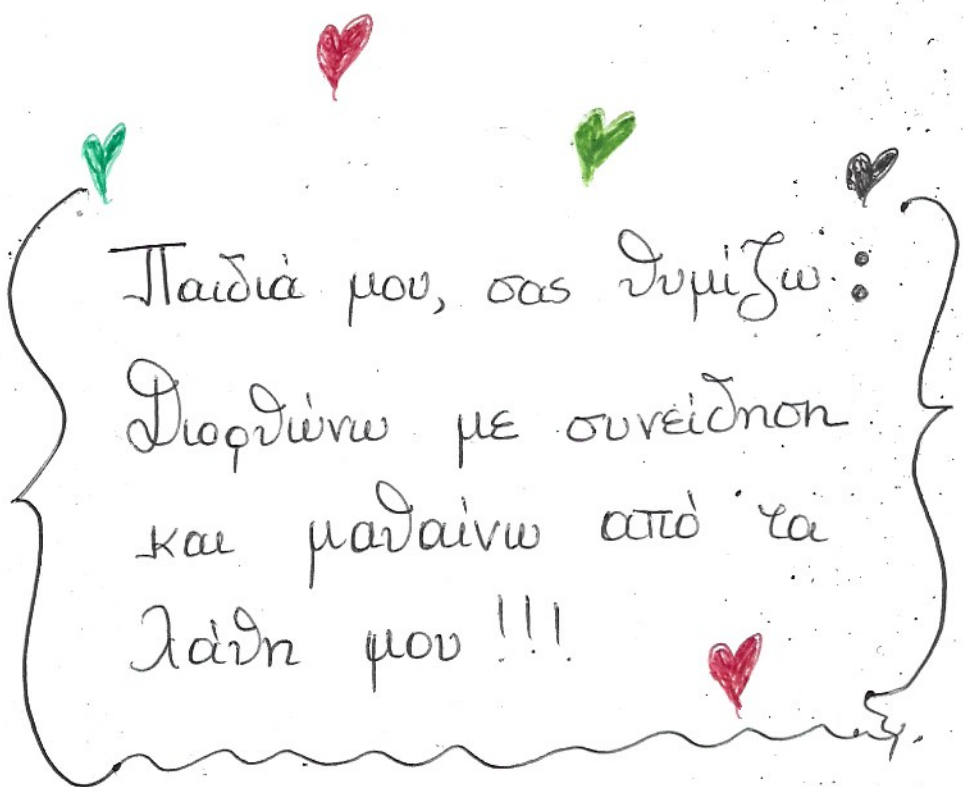 Παιδιά μου, σας θυμίζω:
Διορθώνω με συνείδηση
και μαθαίνω από τα
λάθη μου!!!